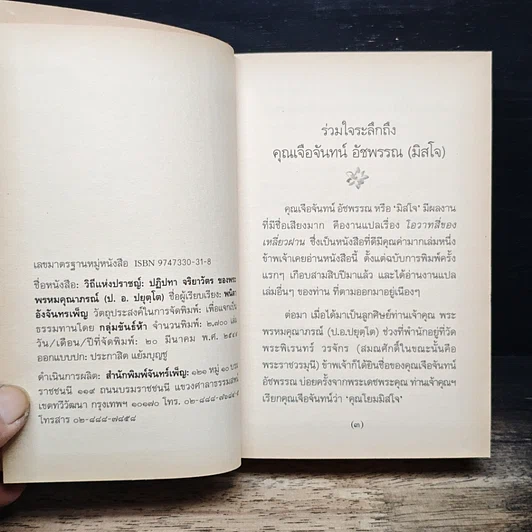 เลขมาตรฐานหมู่หนังสือ ISBN 9747330-31-8
ชื่อหนังสือ: วิถีแห่งปราชญ์: ปฏิปทา จริยาวัตร ของพระ
พรหมคุณาภรณ์ (ป. อ. ปยุตฺโต) ชื่อผู้เรียบเรียง: พนิตา
อังจันทรเพ็ญ วัตถุประสงค์ในการจัดพิมพ์: เพื่อแจกเป็น
ธรรมทานโดย กลุ่มขันธ์ห้า จำนวนพิมพ์: ๒,๗๐๐
วัน/เดือน/ปีที่จัดพิมพ์: ๒๐ มีนาคม พ.ศ.
ออกแบบปก: ประกาสิต แย้มบุญชู
ดำเนินการผลิต: สำนักพิมพ์จันทร์เพ็ญ: ๑๒๑ หมู่ ๑๐
ราชชนนี ๑๑๔ ถนนบรมราชชนนี แขวงศาลาธรรมสพน์
เขตทวีวัฒนา กรุงเทพฯ ๑๐๑๗๐ โทร.
โทรสาร ๐๒-๔๔๔-๗๘๕๘
ร่วมใจระลึกถึง
คุณเจือจันทน์ อัชพรรณ (มิสโจ)
คุณเจือจันทน์ อัชพรรณ หรือ ‘มิสโจ’ มีผลงาน
ที่มีชื่อเสียงมาก คืองานแปลเรื่อง โอวาทสี่ของ
เหลี่ยวฝาน ซึ่งเป็นหนังสือที่ดีมีคุณค่ามากเล่มหนึ่ง
ข้าพเจ้าเคยอ่านหนังสือนี้ ตั้งแต่ฉบับการพิมพ์ครั้ง
แรกๆ เกือบสามสิบปีมาแล้ว และได้อ่านงานแปล
เล่มอื่นๆ ของท่าน ที่ตามออกมาอยู่เนืองๆ
ต่อมา เมื่อได้มาเป็นลูกศิษย์ท่านเจ้าคุณ พระ
พรหมคุณาภรณ์ (ป.อ.ปยุตฺโต) ช่วงที่พำนักอยู่ที่วัด
พระพิเรนทร์ วรจักร (สมณศักดิ์ในขณะนั้นคือ
พระราชวรมุนี) ข้าพเจ้าก็ได้ยินชื่อของคุณเจือจันทน์
อัชพรรณ บ่อยครั้งจากพระเดชพระคุณ ท่านเจ้าคุณฯ
เรียกคุณเจือจันทน์ว่า ‘คุณโยมมิสโจ’
(๓)